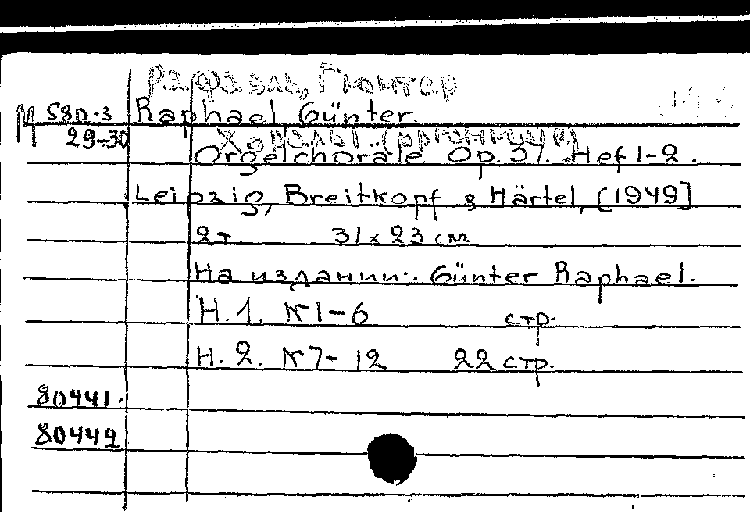 Рафаэль, Гюнтер
М 580-3 Raphael Günter.
29-30 Хоралы (органные)
Orgelchorale Op. 37. Hef 1-2.
Leipzig, Breitkopf & Härtel, [1949]
2т 31 x 23 см
На издании: Günter Raphael.
H. 1. N 1-6 стр.
H. 2. N 7-12 22 стр.
80441.
80442